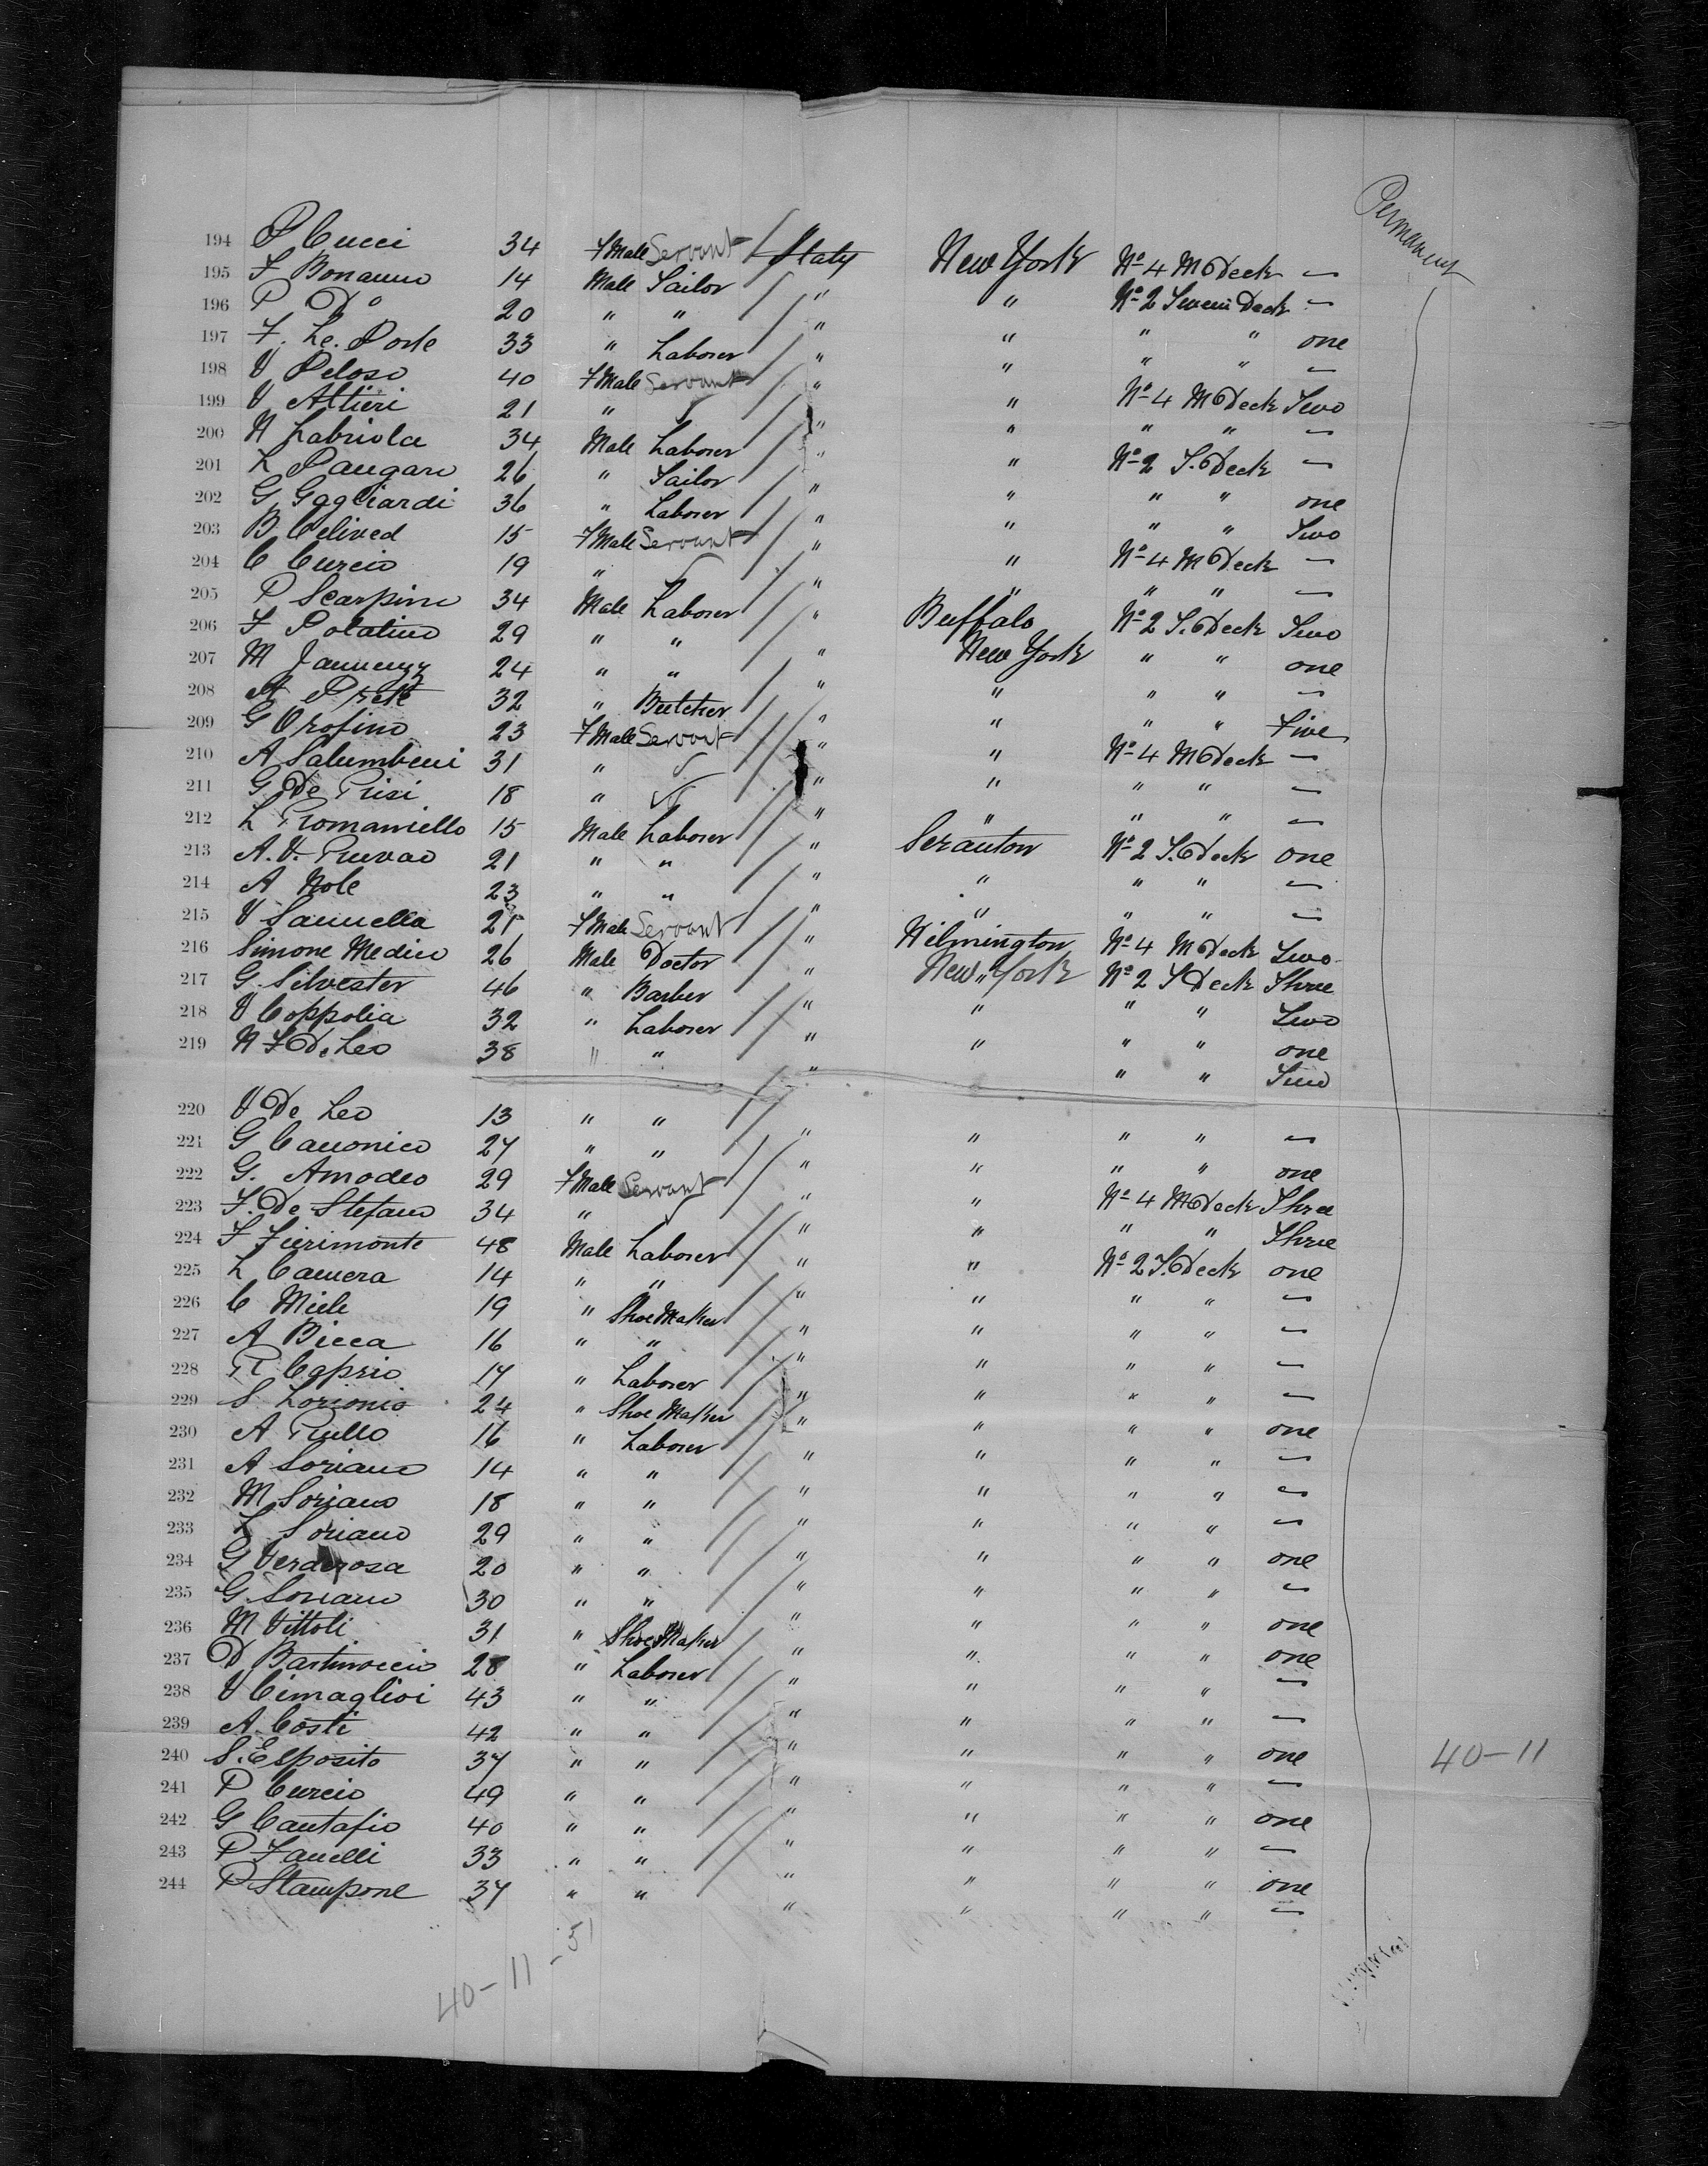 Permanent
194 P Cucci 34 FMale Servant Italy New York No 4 M Deck —
195 F Bonanno 14 Male Tailor " " No 2 Tween Deck —
196 P Do 20 " " " " " " one
197 F. Le. Porte 33 " Laborer " " " " —
198 V Peloso 40 FMale Servant " " No 4 M Deck Two
199 V Altieri 21 " " " " " —
200 N Labriola 34 Male Laborer " " No 2 T. Deck —
201 L Paugaro 26 " Tailor " " " " one
202 G Gagliardi 36 " Laborer " " " " Two
203 B Celived 15 FMale Servant " " No 4 M Deck —
204 C Curcio 19 " " " " " —
205 P Scarpino 34 Male Laborer " Buffalo No 2 T. Deck Two
206 F Polatino 29 " " " New York " " one
207 M 24 " " " " " " —
208 A Prete 32 " Butcher " " " " Five
209 G Orofino 23 FMale Servant " " No 4 M Deck —
210 A Salumbeni 31 " " " " " —
211 G De Prisi 18 " " " " " —
212 L Romaniello 15 Male Laborer " Scranton No 2 T. Deck one
213 A. V. 21 " " " " " " —
214 A Nole 23 " " " " " " —
215 V Sannella 21 FMale Servant " Wilmington No 4 M Deck Two
216 Simone Medico 26 Male Doctor " New York No 2 T Deck Three
217 G. Silvester 46 " Barber " " " " Two
218 V Coppolia 32 " Laborer " " " " one
219 N F De Leo 38 " " " " " Two
220 V De Leo 13 " " " " " " —
221 G Canonico 27 " " " " " " one
222 G. Amodeo 29 FMale Servant " " No 4 M Deck Three
223 F. De Stefano 34 " " " " " Three
224 F Fierimonte 48 Male Laborer " " No 2 T. Deck one
225 L Camera 14 " " " " " " —
226 C Miele 19 " Shoe Maker " " " " —
227 A Bicca 16 " " " " " " —
228 R Caprio 17 " Laborer " " " " —
229 S Lorionio 24 " Shoe Maker " " " " one
230 A Rullo 16 " Laborer " " " " —
231 A Soriano 14 " " " " " " —
232 M Soriano 18 " " " " " " —
233 L Soriano 29 " " " " " " one
234 G Verderosa 20 " " " " " " —
235 G Soriano 30 " " " " " " one
236 M Vittoli 31 " Shoe Maker " " " " one
237 D Bartinoccio 28 " Laborer " " " " —
238 V Cimaglioi 43 " " " " " " —
239 A. Costi 42 " " " " " " one
240 S. Esposito 37 " " " " " " —
241 P Curcio 49 " " " " " " one
242 G Cantafio 40 " " " " " " —
243 P Fanelli 33 " " " " " " one
244 P Stampone 37 " " " " " " —
40-11
40-11-51